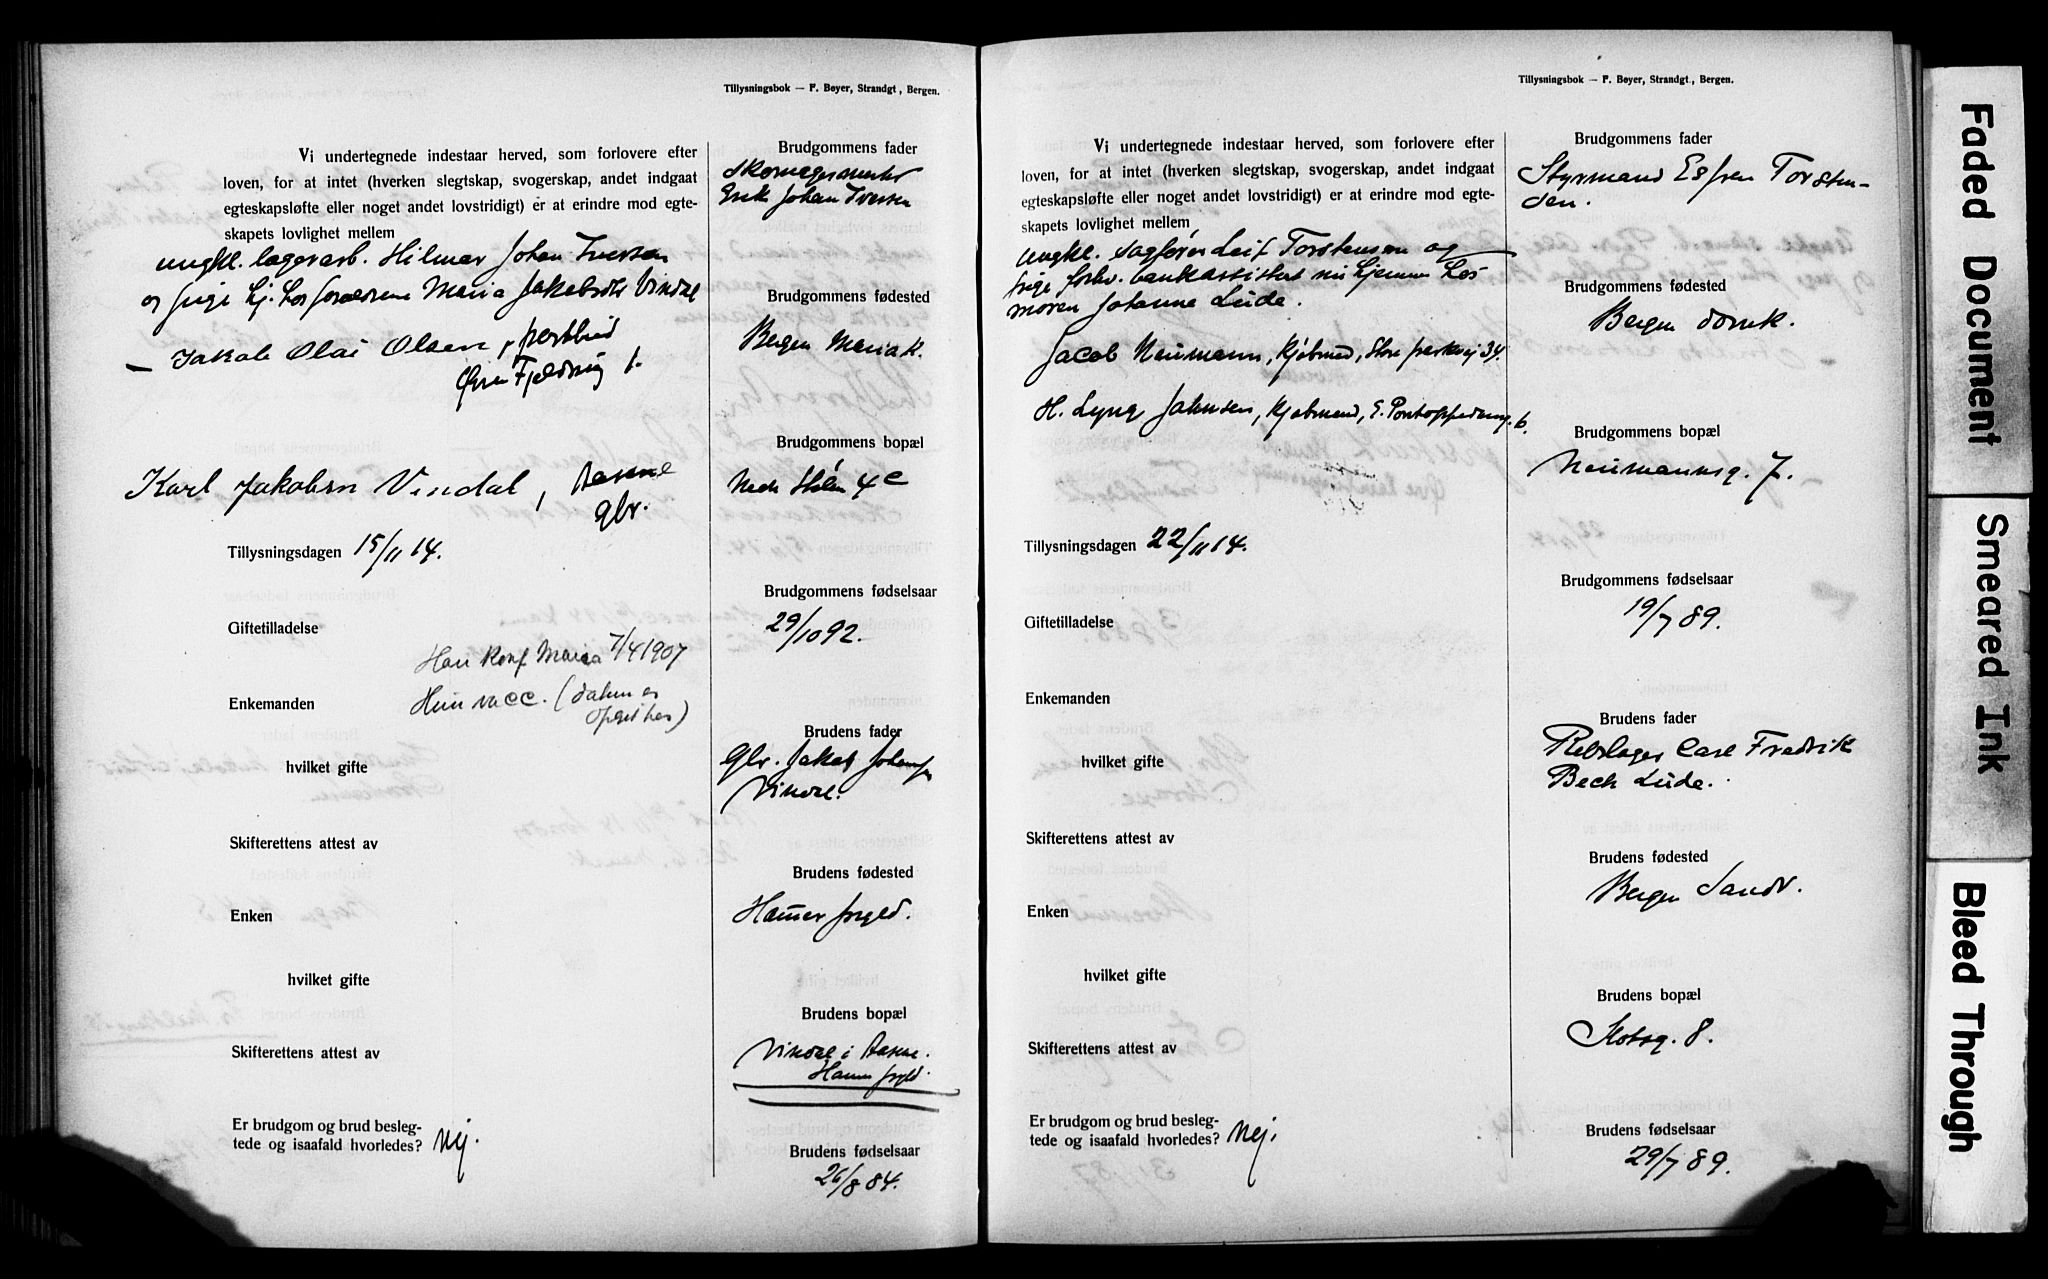 Tillysningsbok — F. Beyer, Strandgt, Bergen.
Vi undertegnede indestaar herved, som forlovere efter
loven, for at intet (hverken slegtskap, svogerskap, andet indgaat
egteskapsløfte eller noget andet lovstridigt) er at erindre mod egte-
skapets lovlighet mellem
ungkl. lagerarb. Hilmar Johan Iversen
og pige hj. hos forældrene Maria Jakobsdtr Vindal
— Jakob Olai Olsen, postbud
Øvre Fjeldsmug 1.
Karl Jakobsen Vindal,
gbr.
Tillysningsdagen 15/11 14.
Giftetilladelse
Han konf. Maria 7/4 1907
Enkemanden
Hun vacc. (datum er
opgit her)
hvilket gifte
Skifterettens attest av
Enken
hvilket gifte
Skifterettens attest av
Er brudgom og brud besleg-
tede og isaafald hvorledes? Nej.
Brudgommens fader
Skomagermester
Erik Johan Iversen
Brudgommens fødested
Bergen Maria k.
Brudgommens bopæl
Nedr Stølen 4c
Brudgommens fødselsaar
29/10 92.
Brudens fader
Gbr. Jakob Johannes
Vindal.
Brudens fødested
Hamer prgld.
Brudens bopæl
Vindal i
Hamer prgld.
Brudens fødselsaar
26/8 84.
Tillysningsbok — F. Beyer, Strandgt, Bergen.
Vi undertegnede indestaar herved, som forlovere efter
loven, for at intet (hverken slegtskap, svogerskap, andet indgaat
egteskapsløfte eller noget andet lovstridigt) er at erindre mod egte-
skapets lovlighet mellem
ungkl. sagfører Leif Torstensen og
pige forhv. bankassistent nu hjemme hos
moren Johanne Lüde.
Jacob Neumann, Kjøbmd, Store parkvei 34.
H. Lyng Johnsen, Kjøbmand, E. Pontoppidansg. 6.
Tillysningsdagen 22/11 14.
Giftetilladelse
Enkemanden
hvilket gifte
Skifterettens attest av
Enken
hvilket gifte
Skifterettens attest av
Er brudgom og brud besleg-
tede og isaafald hvorledes? Nej.
Brudgommens fader
Styrmand Torsten-
sen.
Brudgommens fødested
Bergen domk.
Brudgommens bopæl
Neumannsg. 7.
Brudgommens fødselsaar
19/7 89.
Brudens fader
Rebslager Carl Fredrik
Bech Lüde.
Brudens fødested
Bergen Sandv.
Brudens bopæl
Slotsg. 8.
Brudens fødselsaar
29/7 89.
Faded Document
Smeared Ink
Bleed Through